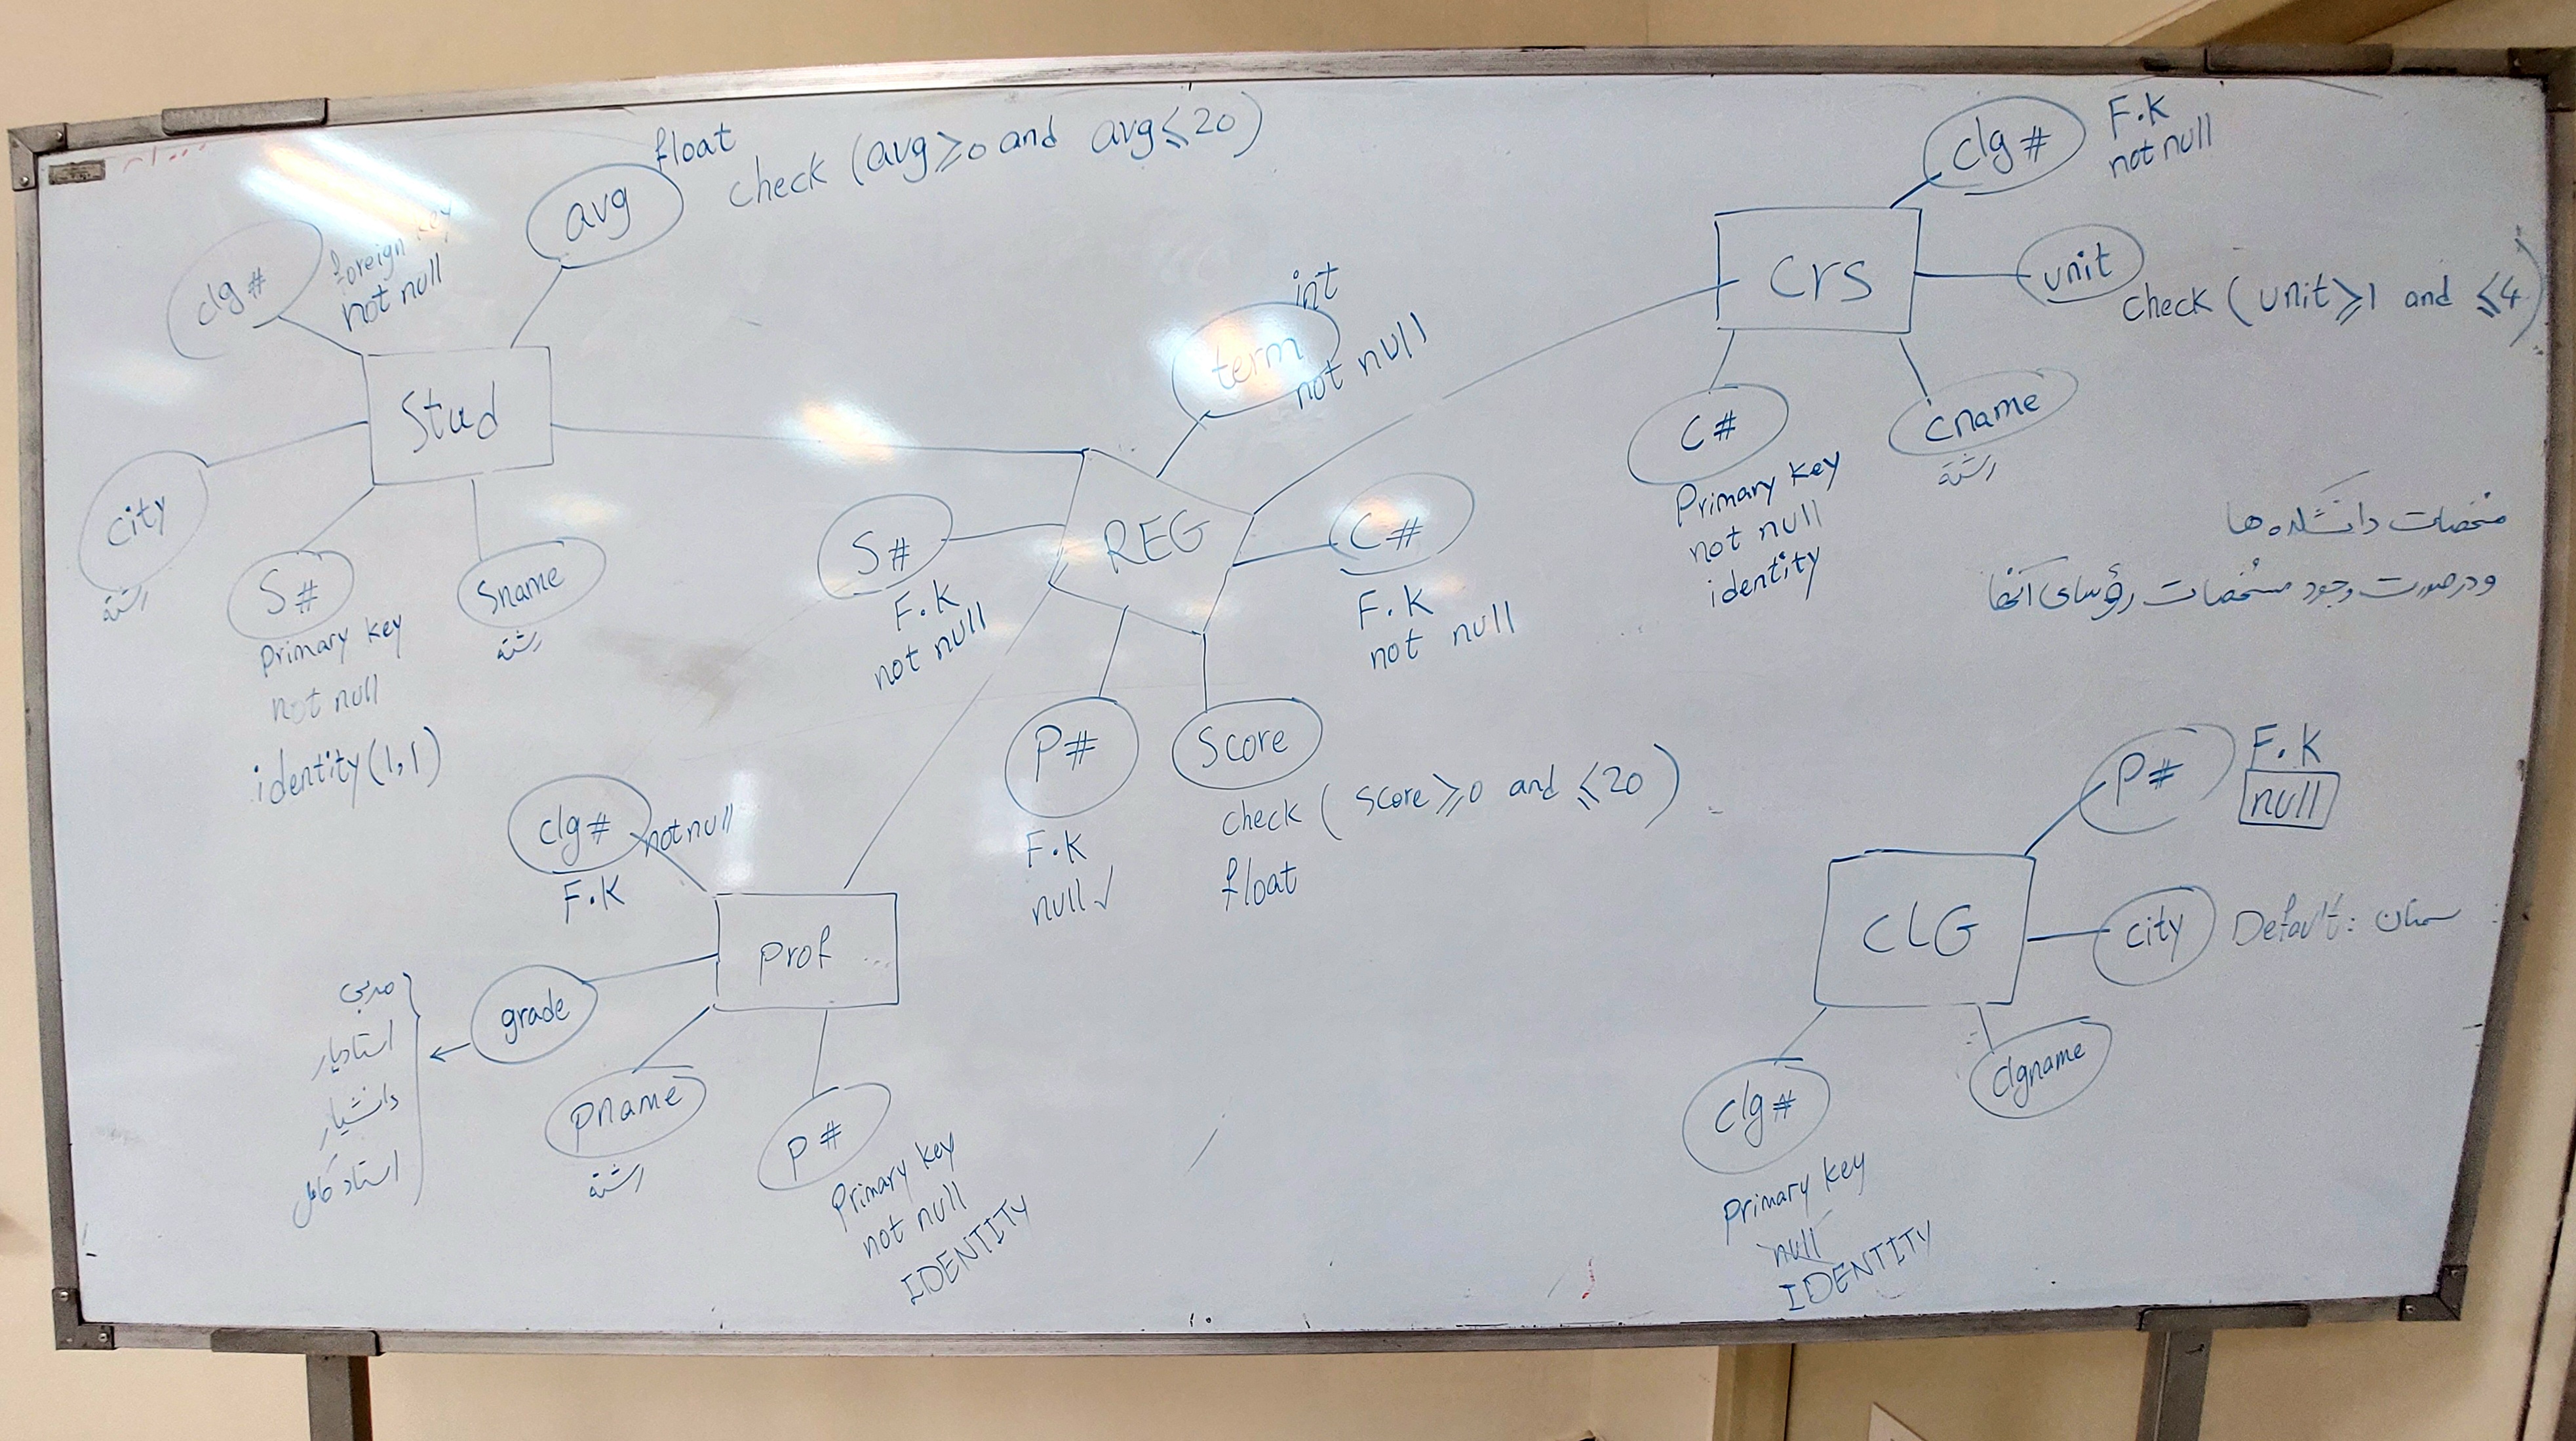 float
check (avg ≥ 0 and avg ≤ 20)
avg
clg #
foreign key
not null
Stud
city
رشته
S #
primary key
not null
identity (1,1)
Sname
رشته
int
term
not null
REG
S #
F.K
not null
C #
F.K
not null
P #
F.K
null ✓
Score
check ( score ≥ 0 and ≤ 20 )
float
clg #
F.K
not null
Crs
unit
check ( unit ≥ 1 and ≤ 4 )
C #
Primary key
not null
identity
cname
رشته
مشخصات دانشکده ها
و در صورت وجود مشخصات رؤسای آنها
clg #
not null
F.K
prof
grade
مربی
استادیار
دانشیار
استاد کامل
pname
رشته
p #
Primary key
not null
IDENTITY
P #
F.K
null
CLG
city
Default: سمنان
clg #
primary key
null
IDENTITY
clgname